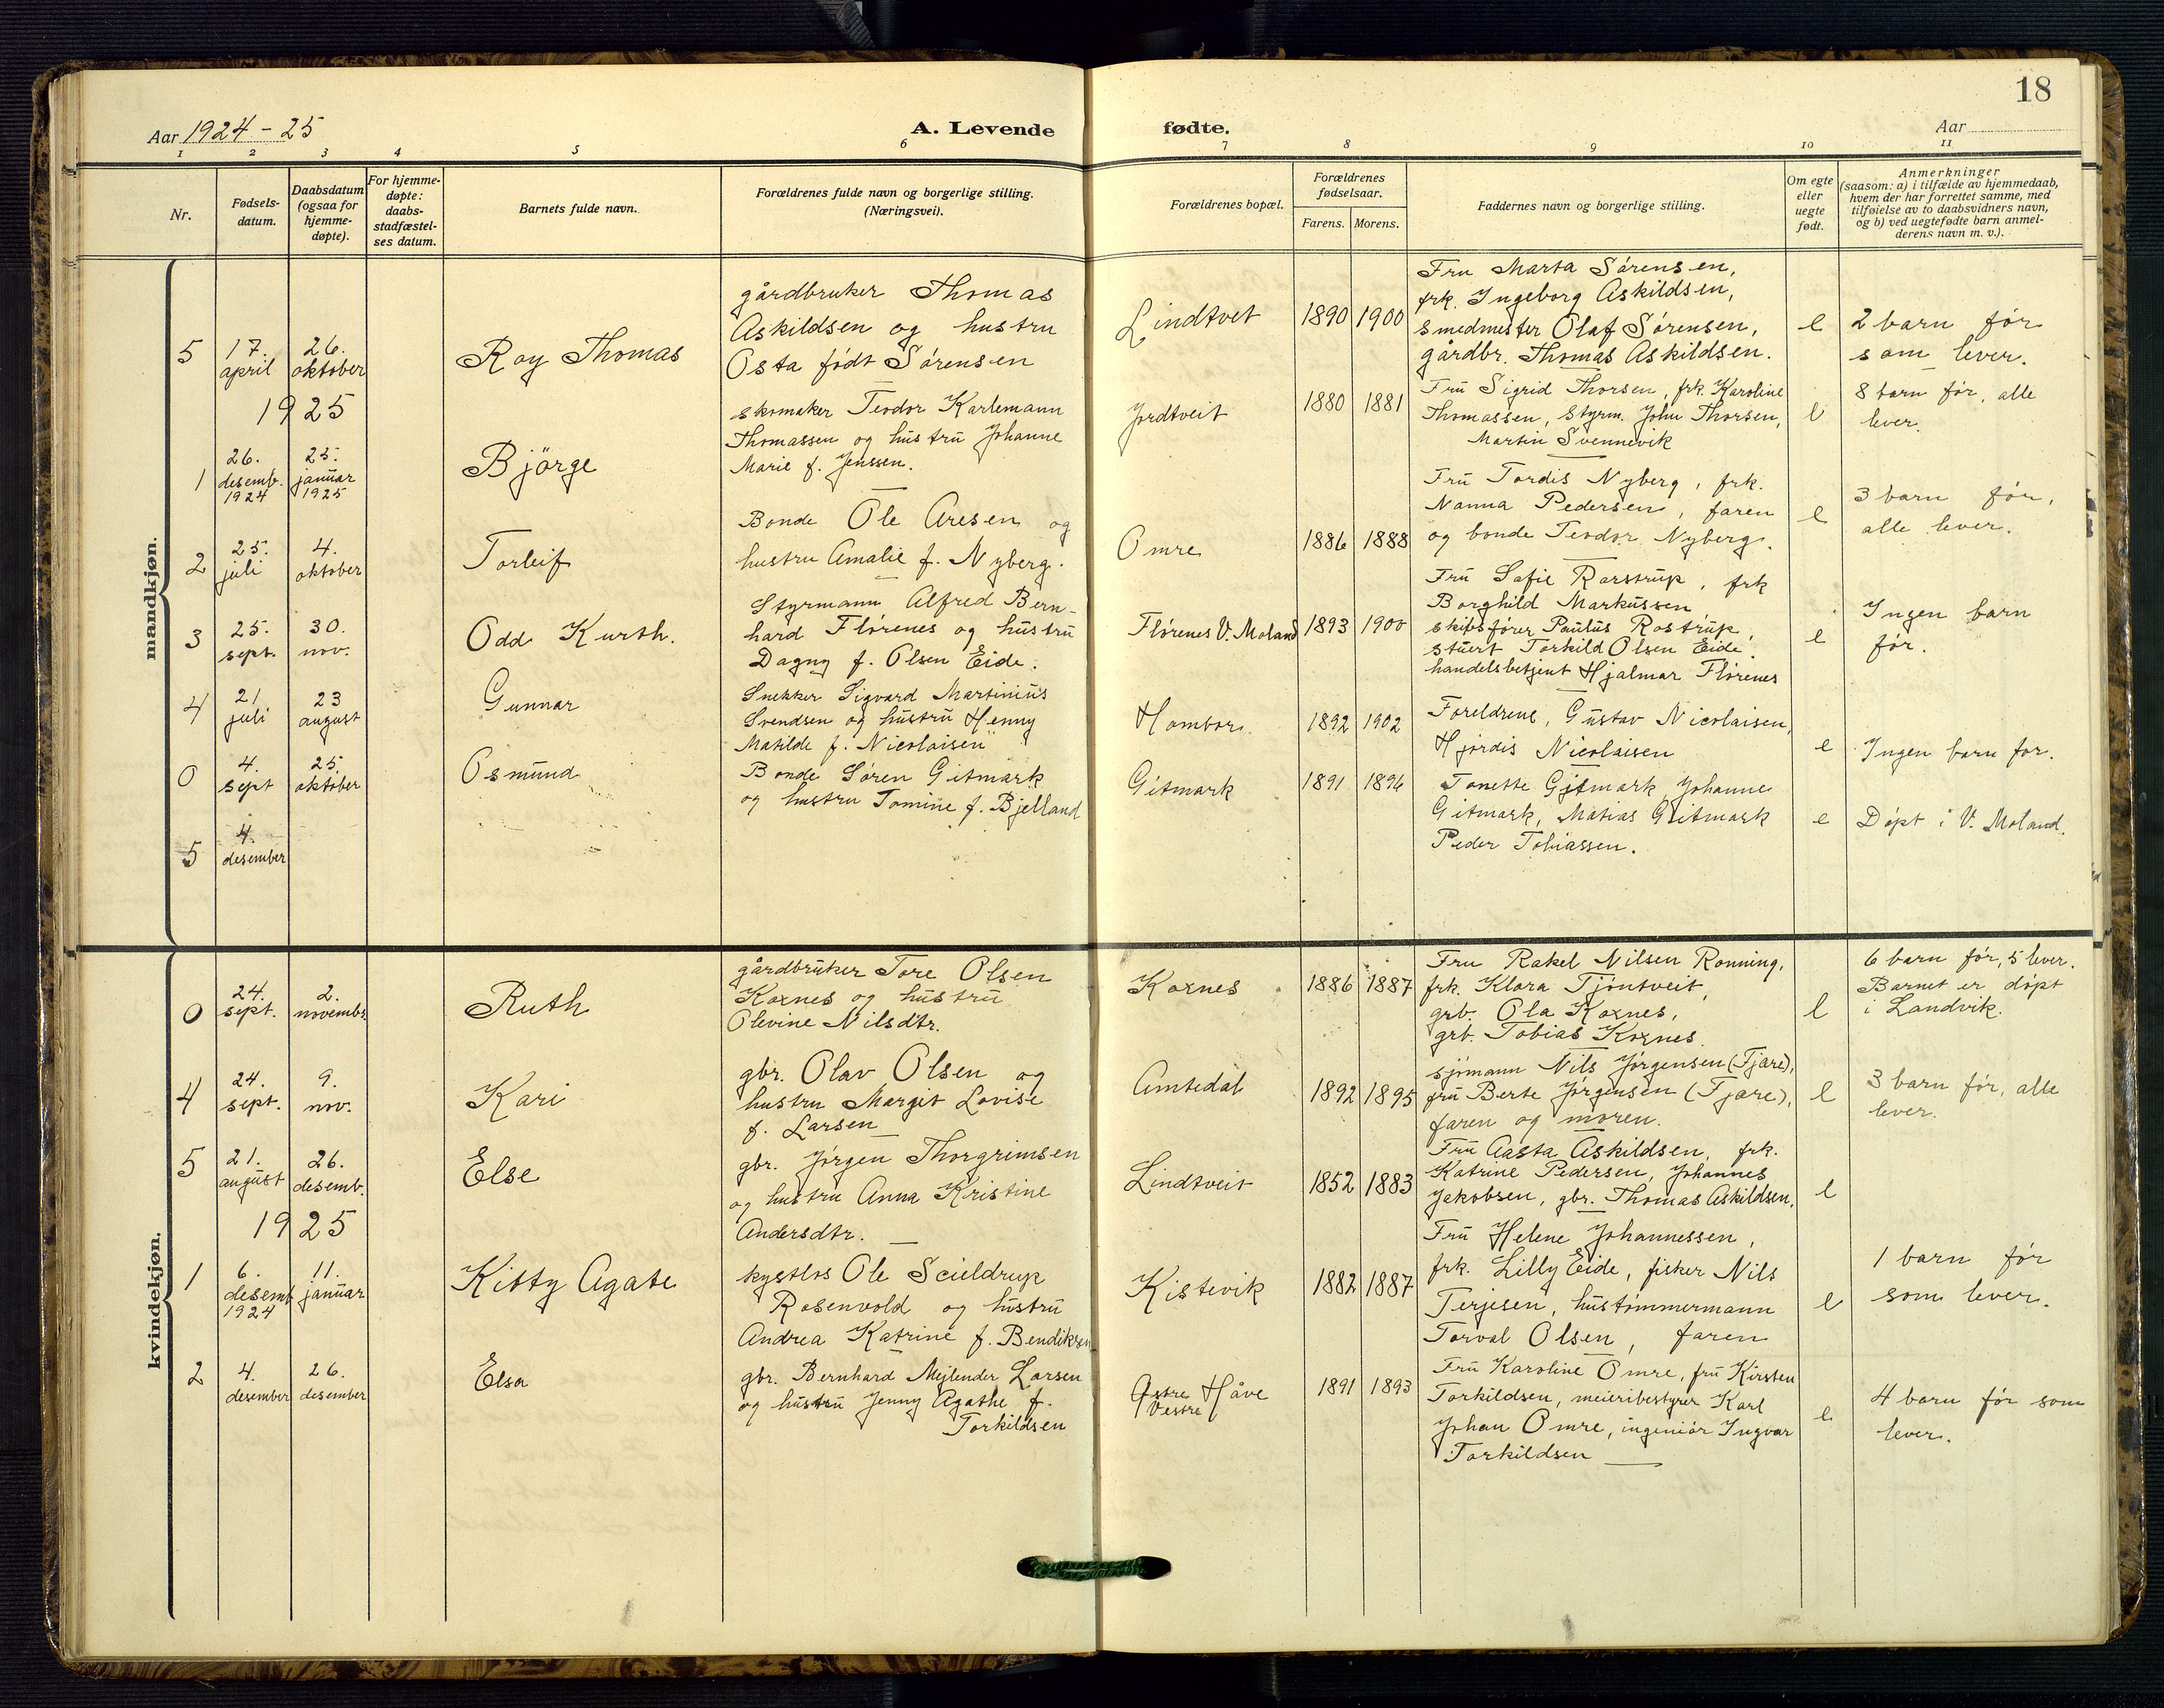 18
Aar 1924 - 25
A. Levende
fødte.
Aar
1 2 3 4 5 6 7 8 9 10 11
Nr.
Fødsels-
datum.
Daabsdatum
(ogsaa for
hjemme-
døpte).
For hjemme-
døpte:
daabs-
stadfæstel-
ses datum.
Barnets fulde navn.
Forældrenes fulde navn og borgerlige stilling.
(Næringsvei).
Forældrenes bopæl.
Forældrenes
fødselsaar.
Farens. Morens.
Faddernes navn og borgerlige stilling.
Om egte
eller
uegte
født.
Anmerkninger
(saasom: a) i tilfælde av hjemmedaab,
hvem der har forrettet samme, med
tilføielse av to daabsvidners navn,
og b) ved uegtefødte barn anmel-
derens navn m. v.).
mandkjøn.
5
17.
april
26.
oktober
Roy Thomas
gårdbruker Thomas
Askildsen og hustru
Osta født Sørensen
Lindtvet
1890 1900
Fru Marta Sørensen,
frk. Ingeborg Askildsen,
smedmester Olaf Sørensen,
gårdbr. Thomas Askildsen.
e
2 barn før
som lever.
1925
1
26.
desemb.
1924
25.
januar
1925
Bjørge
skomaker Teodor Karlemann
Thomassen og hustru Johanne
Marie f. Jenssen.
Jordtveit
1880 1881
Fru Sigrid Thorsen, frk. Karoline
Thomassen, Styrm. John Thorsen,
Martin Svennevik
e
8 barn før, alle
lever.
2
25.
juli
4.
oktober
Torleif
Bonde Ole Aresen og
hustru Amalie f. Nyberg.
Omre
1886 1888
Fru Tordis Nyberg, frk.
Nanna Pedersen, faren
og bonde Teodor Nyberg.
e
3 barn før,
alle lever.
3
25.
sept.
30.
nov.
Odd Kurth.
Styrmann Alfred Bern-
hard Flørenes og hustru
Dagny f. Olsen Eide.
Flørenes V. Moland
1893 1900
Fru Sofie Rostrup, frk
Borghild Markussen
skibsfører Paulus Rostrup,
stuert Torkild Olsen Eide,
handelsbetjent Hjalmar Flørenes
e
Ingen barn
før.
4
21.
juli
23
august
Gunnar
Snekker Sigvard Martinius
Svendsen og hustru Henny
Matilde f. Nicolaisen
Hombor.
1892 1902
Foreldrene, Gustav Nicolaisen,
Hjørdis Nicolaisen
e
Ingen barn før.
0
4.
sept
25.
oktober
Osmund
Bonde Søren Gitmark
og hustru Tomine f. Bjelland
Gitmark
1891 1896
Tonette Gitmark, Johanne
Gitmark, Matias Gitmark
Peder Tobiassen.
e
Døpt i V. Moland.
5
4.
desember
kvindekjøn.
0
24.
sept.
2.
novembr.
Ruth
gårdbruker Tore Olsen
Kornes og hustru
Olevine Nilsdtr.
Kornes
1886 1887
Fru Rakel Nilsen Rønning,
frk. Klara Tjøntveit,
grb. Ola Kornes,
grb. Tobias Kornes.
e
6 barn før, 5 lever.
Barnet er døpt
i Landvik.
4
24.
sept.
9.
nov.
Kari
gbr. Olav Olsen og
hustru Margit Lovise
f. Larsen
Amtedal
1892 1895
sjømann Nils Jørgensen (Fjære),
fru Berte Jørgensen (Fjære),
faren og moren.
e
3 barn før, alle
lever.
5
21.
august
26.
desemb.
Else
gbr. Jørgen Thorgrimsen
og hustru Anna Kristine
Andersdtr.
Lindtveit
1852 1883
Fru Aasta Askildsen, frk.
Katrine Pedersen, Johannes
Jakobsen, gbr. Thomas Askildsen.
e
1925
1
6.
desemb
1924
11.
januar
Kitty Agate
kystlos Ole Scieldrup
Rosenvold og hustru
Andrea Katrine f. Bendiksen
Kistevik
1882 1887
Fru Helene Johannessen,
frk. Lilly Eide, fisker Nils
Terjesen, hustømmermann
Torval Olsen, faren
e
1 barn før
som lever.
2
4.
desember
26.
desember
Elsa
gbr. Bernhard Mejlender Larsen
og hustru Jenny Agathe f.
Torkildsen
Østre Håve
Vestre
1891 1893
Fru Karoline Omre, fru Kirsten
Torkildsen, meieribestyrer Karl
Johan Omre, ingeniør Ingvar
Torkildsen
e
4 barn før som
lever.